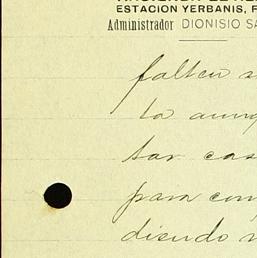 ESTACION YERBANIS, F
Administrador DIONISIO SA
falten s
to aunq
tar cas
para com
diendo n